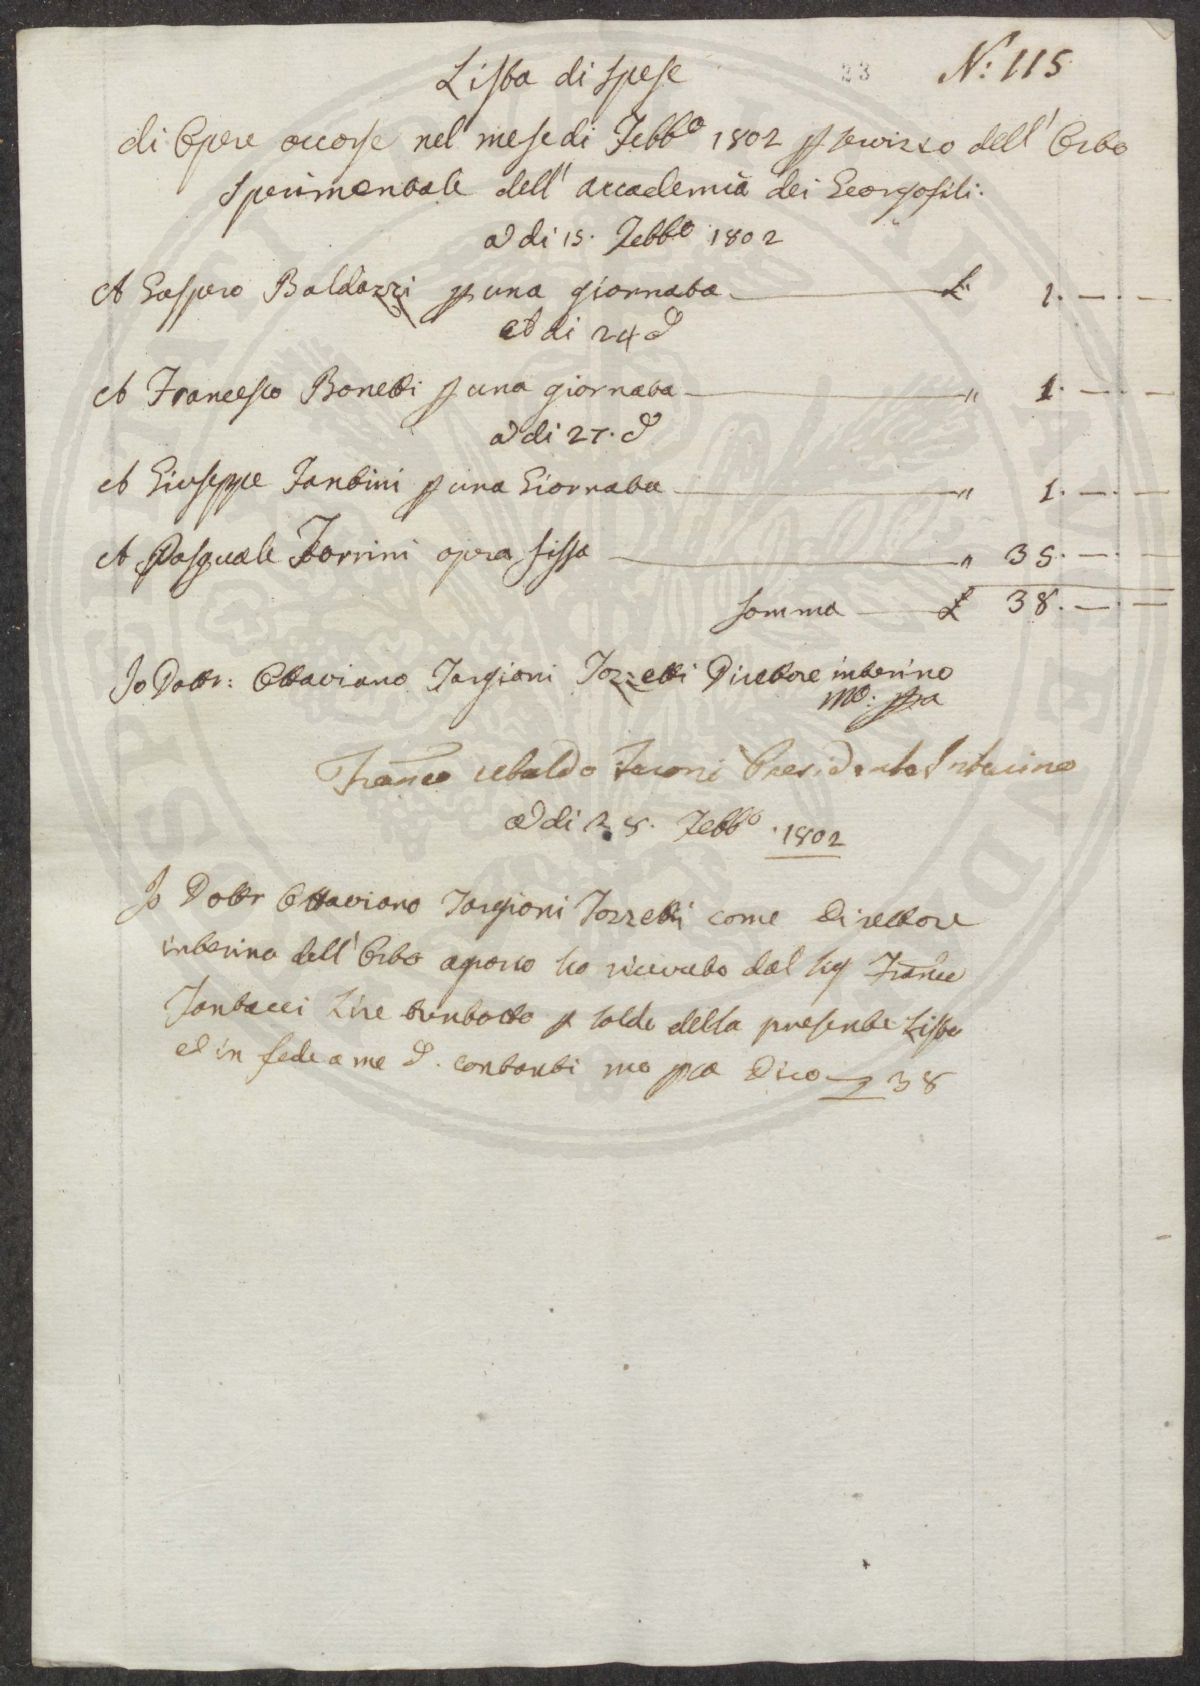 23 N.° 115
Lista di Spese
di Opere occorse nel mese di Febb.o 1802 p servizio dell' Orto
Sperimentale dell' accademia dei Georgofili.
a di 15. Febb.o 1802
A Gaspero Baldazzi p una giornata £ 1. — . —
A di 24 d.o
A Francesco Bonetti p una giornata " 1. — . —
a di 27. d.o
A Giuseppe Tantini p una Giornata " 1. — . —
A Pasquale Torrini opera fissa " 35. — . —
Somma £ 38. — . —
Io Dott.r: Ottaviano Targioni Tozzetti Direttore interino
mo. ppa
Franco Ubaldo Feroni Presidente Interino
a di 28. Febb.o 1802
Io Dottr Ottaviano Targioni Tozzetti come Direttore
interino dell' Orto agrario ho ricevuto dal Sig Franco
Tantacci Lire trentotto p saldo della presente Lista
ed in fede a me d. contanti mo ppa Dico £ 38